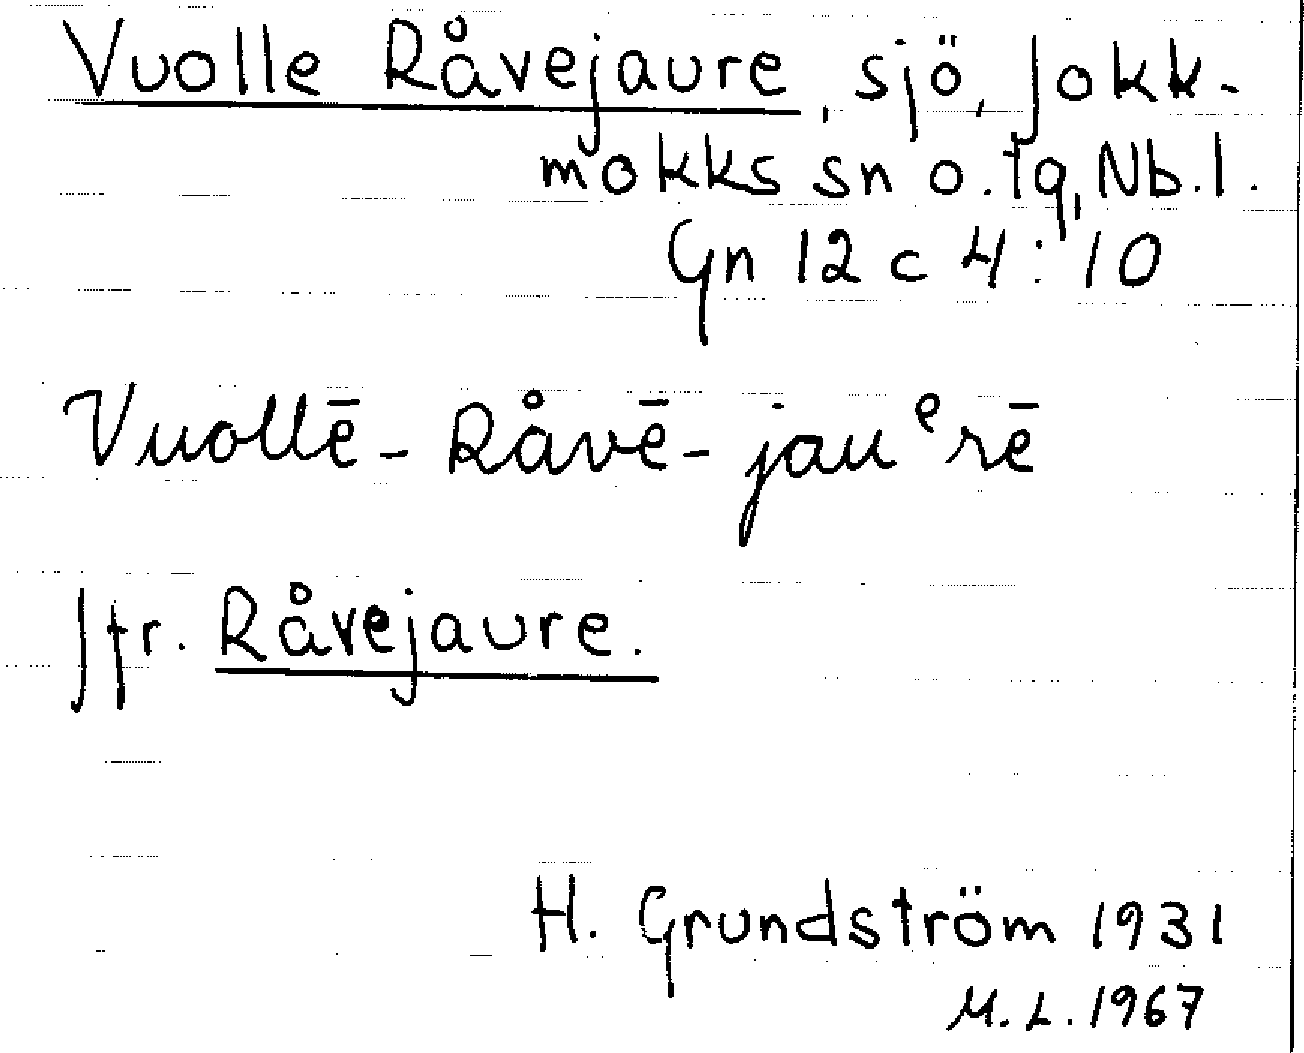 Vuolle Råvejaure, sjö, Jokk-
mokks sn o. tg, Nb. l.
Gn 12 c 4:10
Vuollē-Råvē-jauᵉrē
Jfr. Råvejaure.
H. Grundström 1931
M. L. 1967